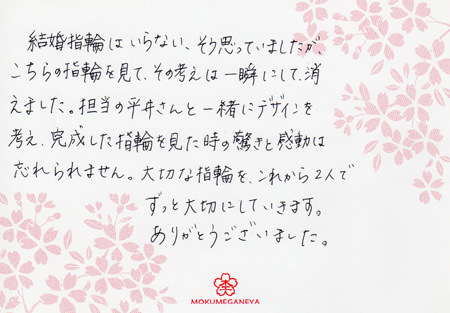 結婚指輪はいらない、そう思っていましたが、
こちらの指輪を見て、その考えは一瞬にして、消
えました。担当の平井さんと一緒にデザインを
考え、完成した指輪を見た時の驚きと感動は
忘れられません。大切な指輪を、これから2人で
ずっと大切にしていきます。
ありがとうございました。
MOKUMEGANEYA